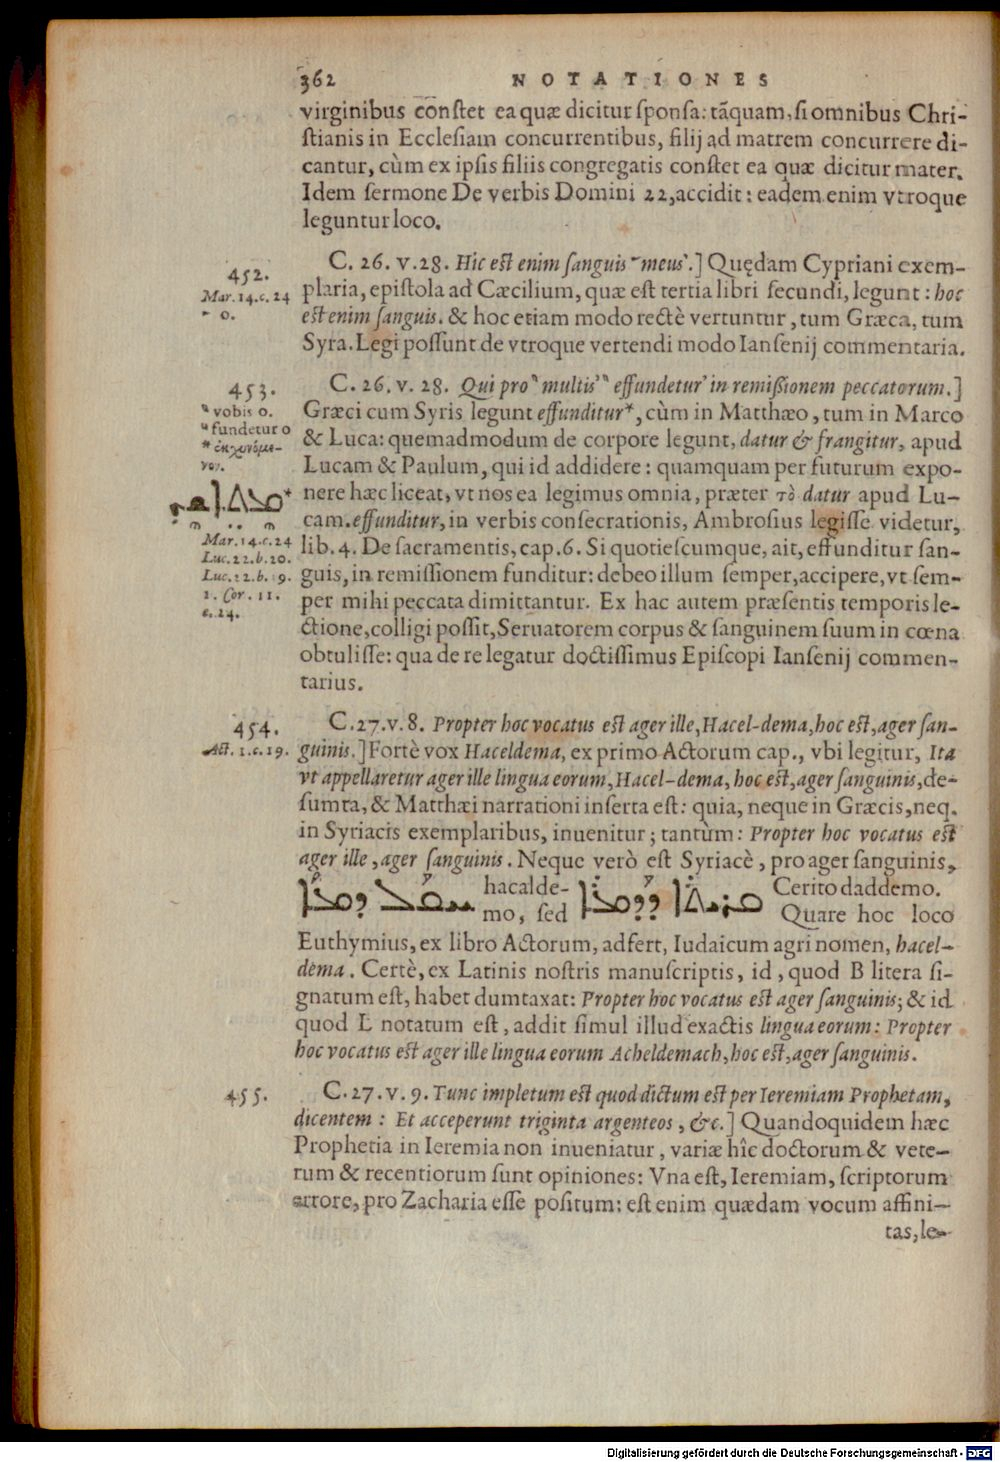 362 NOTATIONES
virginibus constet ea quæ dicitur sponsa: tãquam, si omnibus Chri-
stianis in Ecclesiam concurrentibus, filij ad matrem concurrere di-
cantur, cùm ex ipsis filiis congregatis constet ea quæ dicitur mater.
Idem sermone De verbis Domini 22, accidit: eadem enim vtroque
leguntur loco.
452.
Mar. 14. c. 24
o.
C. 26. v. 28. Hic est enim sanguis meus.] Quędam Cypriani exem-
plaria, epistola ad Cæcilium, quæ est tertia libri secundi, legunt: hoc
est enim sanguis. & hoc etiam modo rectè vertuntur, tum Græca, tum
Syra. Legi possunt de vtroque vertendi modo Iansenij commentaria.
453.
vobis o.
fundetur o
* ἐκχυνόμε-
νον.
Mar. 14. c. 24
Luc. 22. b. 20.
Luc. 22. b. 19.
1. Cor. 11.
c. 24.
C. 26. v. 28. Qui pro multis effundetur in remißionem peccatorum.]
Græci cum Syris legunt effunditur*, cùm in Matthæo, tum in Marco
& Luca: quemadmodum de corpore legunt, datur & frangitur, apud
Lucam & Paulum, qui id addidere: quamquam per futurum expo-
nere hæc liceat, vt nos ea legimus omnia, præter τὸ datur apud Lu-
cam. effunditur, in verbis consecrationis, Ambrosius legisse videtur,
lib. 4. De sacramentis, cap. 6. Si quotiescumque, ait, effunditur san-
guis, in remissionem funditur: debeo illum semper, accipere, vt sem-
per mihi peccata dimittantur. Ex hac autem præsentis temporis le-
ctione, colligi possit, Seruatorem corpus & sanguinem suum in cœna
obtulisse: qua de re legatur doctissimus Episcopi Iansenij commen-
tarius.
454.
Act. 1. c. 19.
C. 27. v. 8. Propter hoc vocatus est ager ille, Hacel-dema, hoc est, ager san-
guinis.] Fortè vox Haceldema, ex primo Actorum cap., vbi legitur, Ita
vt appellaretur ager ille lingua eorum, Hacel-dema, hoc est, ager sanguinis, de-
sumta, & Matthæi narrationi inserta est: quia, neque in Græcis, neq.
in Syriacis exemplaribus, inuenitur; tantùm: Propter hoc vocatus est
ager ille, ager sanguinis. Neque verò est Syriacè, pro ager sanguinis,
hacalde- Cerito daddemo.
mo, sed Quare hoc loco
Euthymius, ex libro Actorum, adfert, Iudaicum agri nomen, hacel-
dema. Certè, ex Latinis nostris manuscriptis, id, quod B litera si-
gnatum est, habet dumtaxat: Propter hoc vocatus est ager sanguinis; & id
quod L notatum est, addit simul illud exactis lingua eorum: Propter
hoc vocatus est ager ille lingua eorum Acheldemach, hoc est, ager sanguinis.
455.
C. 27. v. 9. Tunc impletum est quod dictum est per Ieremiam Prophetam,
dicentem: Et acceperunt triginta argenteos, &c.] Quandoquidem hæc
Prophetia in Ieremia non inueniatur, variæ hîc doctorum & vete-
rum & recentiorum sunt opiniones: Vna est, Ieremiam, scriptorum
errore, pro Zacharia esse positum: est enim quædam vocum affini-
tas, le-
Digitalisierung gefördert durch die Deutsche Forschungsgemeinschaft - DFG